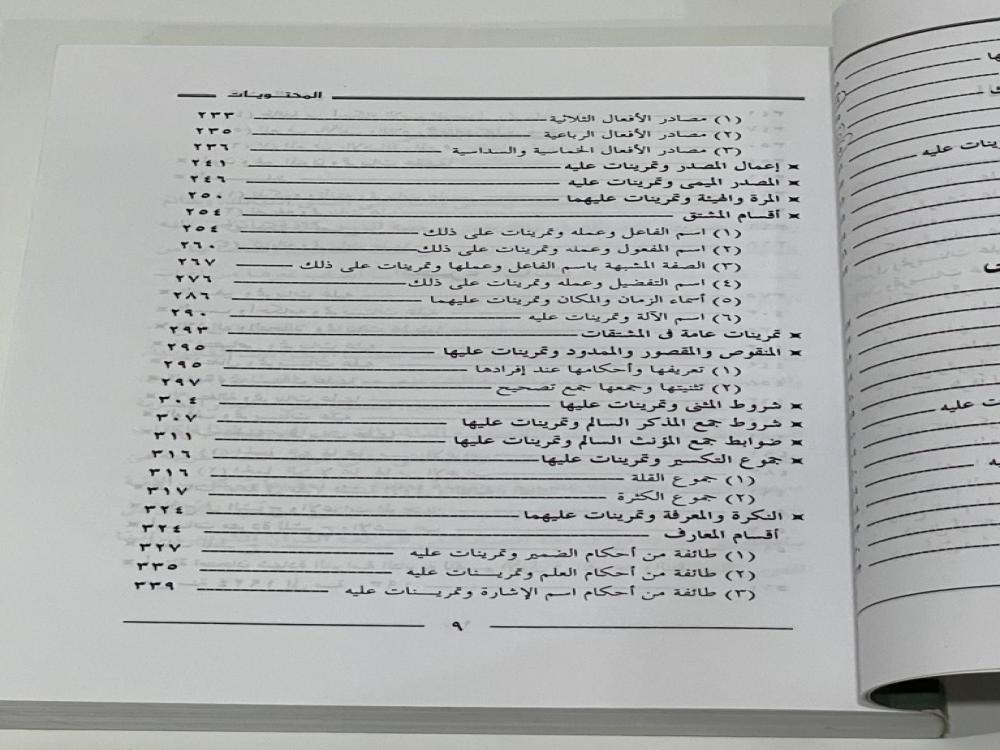 المحتويات
(١) مصادر الأفعال الثلاثية ٢٣٣
(٢) مصادر الأفعال الرباعية ٢٣٥
(٣) مصادر الأفعال الخماسية والسداسية ٢٣٦
* إعمال المصدر وتمرينات عليه ٢٤١
* المصدر الميمى وتمرينات عليه ٢٤٦
* المرة والهيئة وتمرينات عليهما ٢٥٠
* أقسام المشتق ٢٥٤
(١) اسم الفاعل وعمله وتمرينات على ذلك ٢٥٤
(٢) اسم المفعول وعمله وتمرينات على ذلك ٢٦٠
(٣) الصفة المشبهة باسم الفاعل وعملها وتمرينات على ذلك ٢٦٧
(٤) اسم التفضيل وعمله وتمرينات على ذلك ٢٧٦
(٥) أسماء الزمان والمكان وتمرينات عليهما ٢٨٦
(٦) اسم الآلة وتمرينات عليه ٢٩٠
* تمرينات عامة فى المشتقات ٢٩٣
* المنقوص والمقصور والممدود وتمرينات عليها ٢٩٥
(١) تعريفها وأحكامها عند إفرادها ٢٩٥
(٢) تثنيتها وجمعها جمع تصحيح ٢٩٧
* شروط المثنى وتمرينات عليها ٣٠٤
* شروط جمع المذكر السالم وتمرينات عليها ٣٠٧
* ضوابط جمع المؤنث السالم وتمرينات عليها ٣١١
* جموع التكسير وتمرينات عليها ٣١٦
(١) جموع القلة ٣١٦
(٢) جموع الكثرة ٣١٧
* النكرة والمعرفة وتمرينات عليهما ٣٢٤
أقسام المعارف ٣٢٤
(١) طائفة من أحكام الضمير وتمرينات عليه ٣٢٧
(٢) طائفة من أحكام العلم وتمرينات عليه ٣٣٥
(٣) طائفة من أحكام اسم الإشارة وتمرينات عليه ٣٣٩
٩